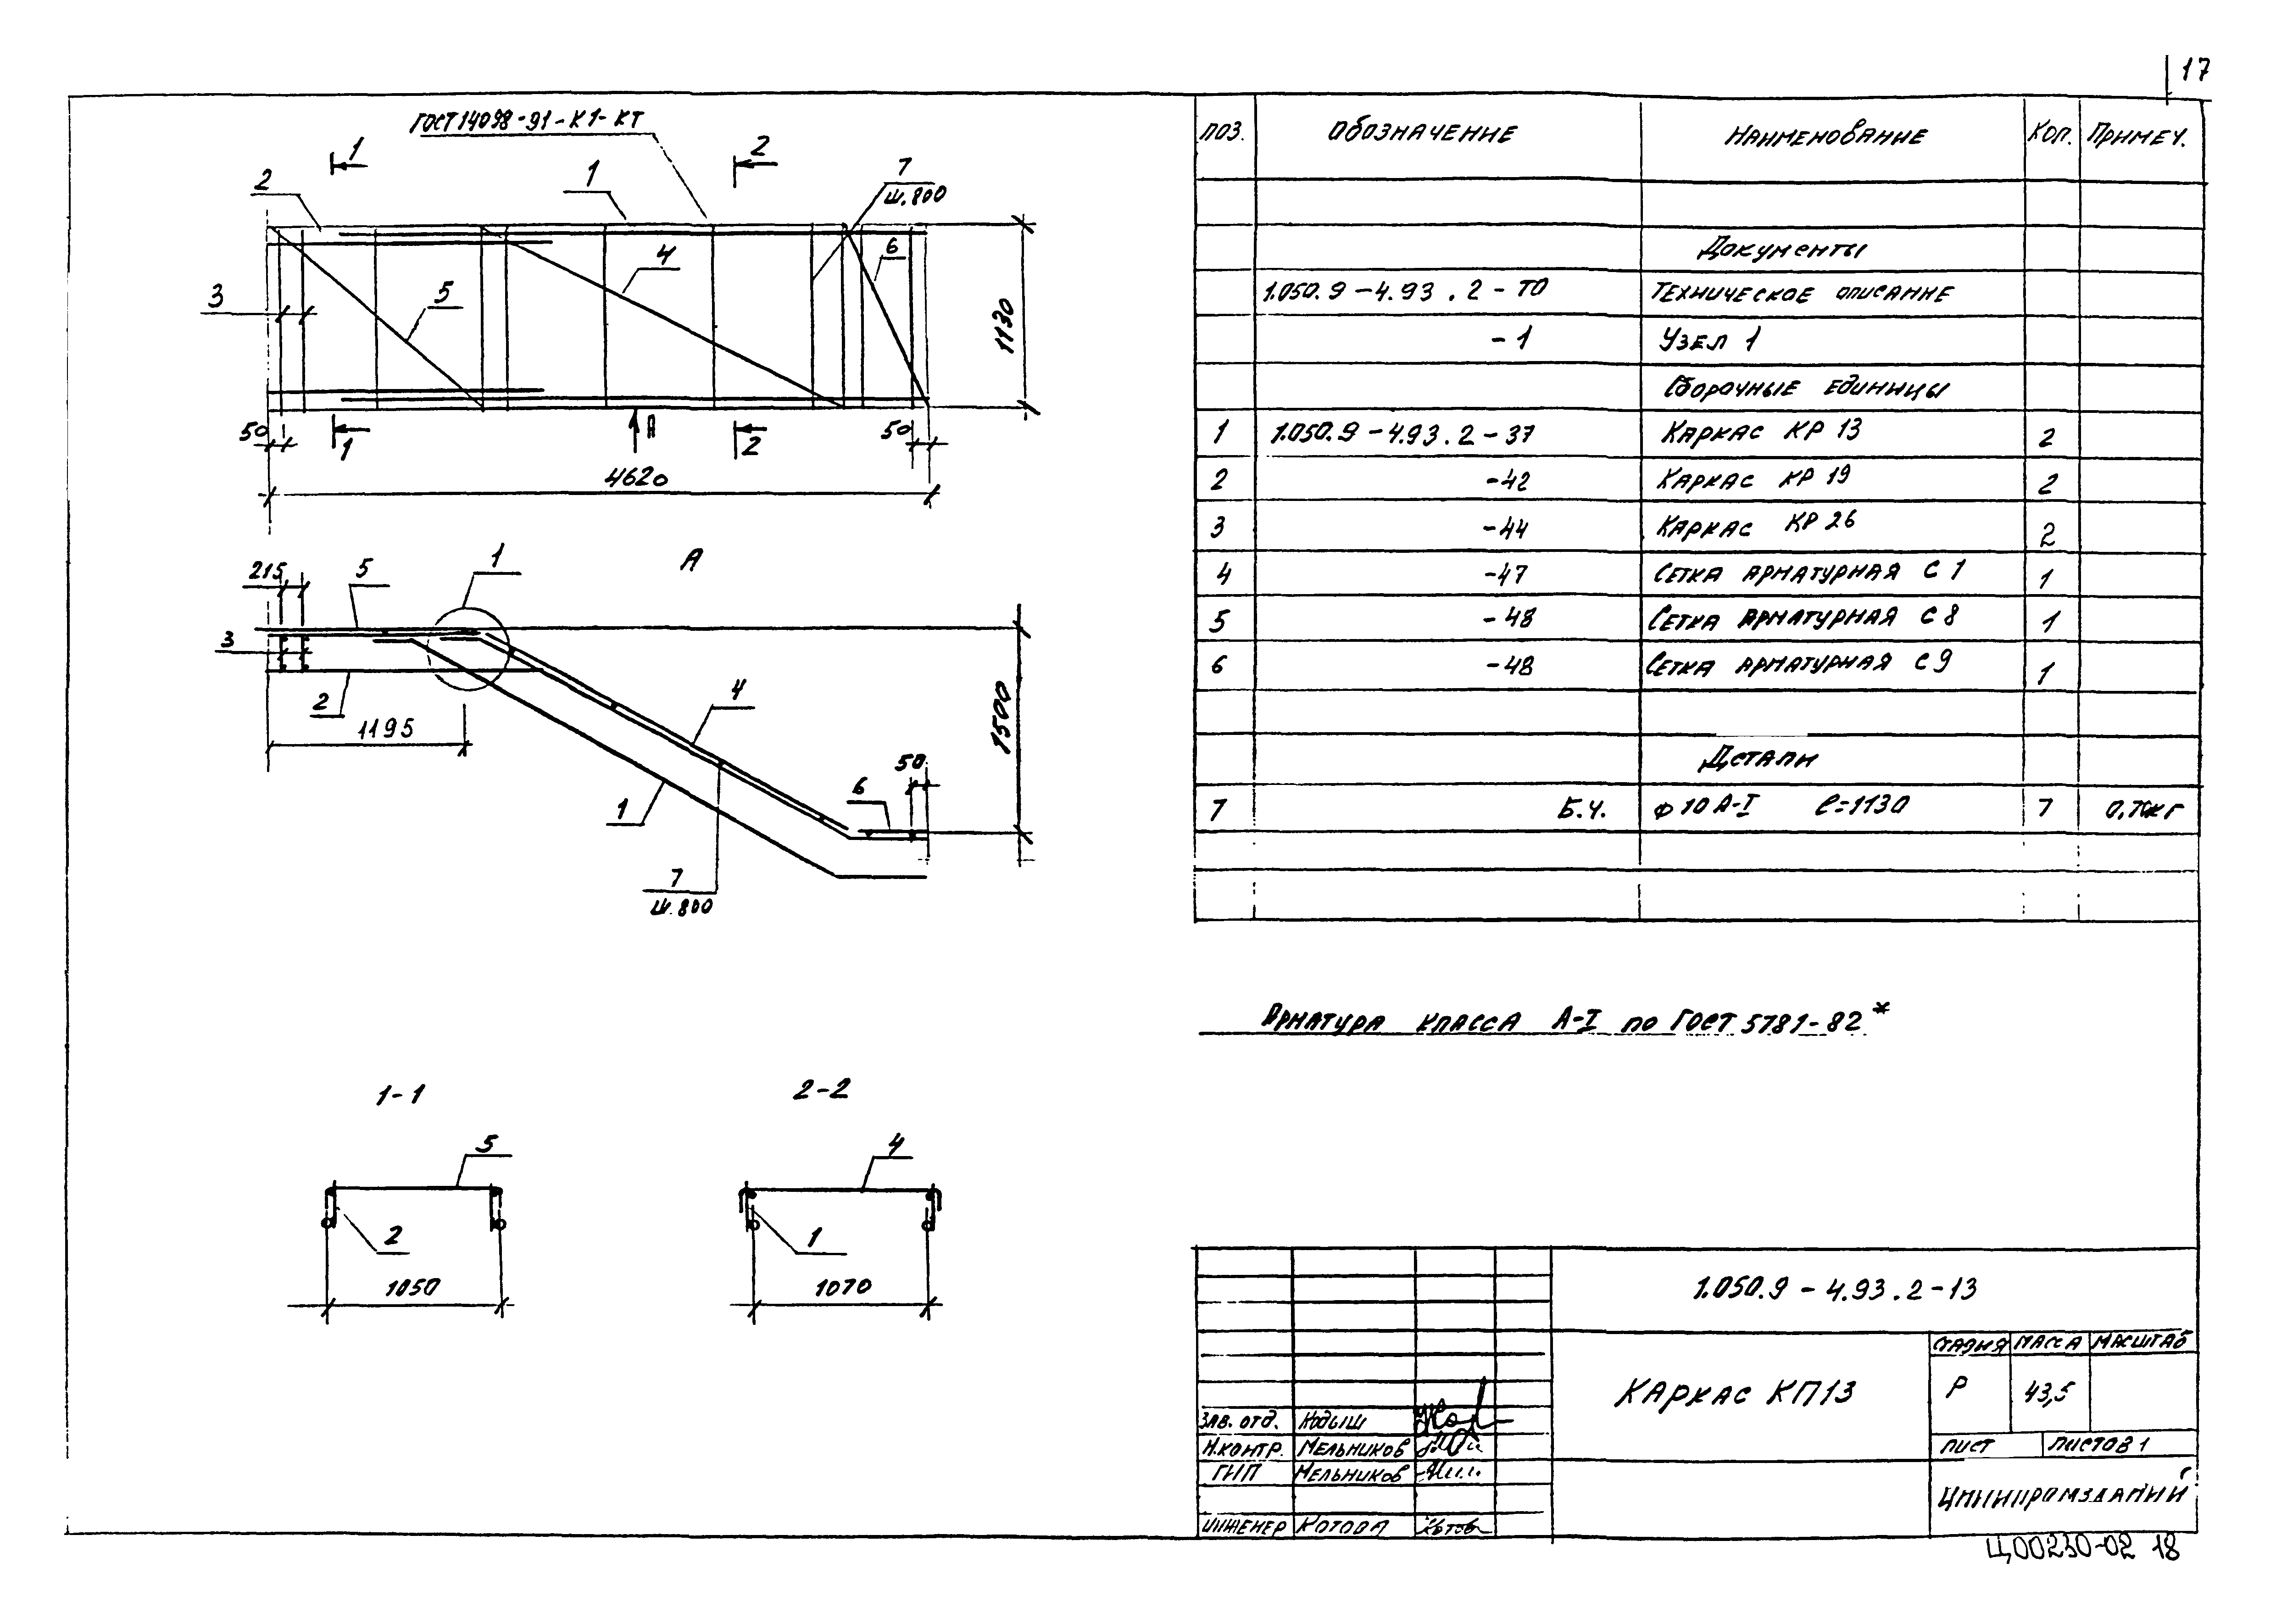 17
ГОСТ 14098-91-К1-КТ
1
2
2
1
7
ш.800
3
5
4
6
1130
50
1
А
2
50
4620
А
215
5
1
3
2
1195
4
1500
50
6
1
7
ш.800
1-1
2-2
5
2
1050
4
1
1070
поз. Обозначение Наименование Кол. Примеч.
Документы
1.050.9-4.93.2-ТО Техническое описание
-1 Узел 1
Сборочные единицы
1 1.050.9-4.93.2-37 Каркас КР 13 2
2 -42 Каркас КР 19 2
3 -44 Каркас КР 26 2
4 -47 Сетка арматурная С 1 1
5 -48 Сетка арматурная С 8 1
6 -48 Сетка арматурная С 9 1
Детали
7 Б.Ч. ф 10 А-I ℓ=1130 7 0,70кг
Арматура класса А-I по ГОСТ 5781-82*
1.050.9-4.93.2-13
Каркас КП13
Стадия Масса Масштаб
Р 43,5
Лист Листов 1
ЦНИИпромзданий
Зав. отд. Кодыш
Н.контр. Мельников
ГИП Мельников
Инженер Котова
Ц00230-02 18